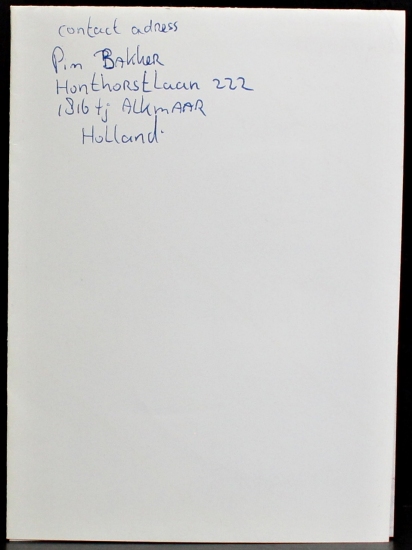 contact adress
Pim BAKKER
Honthorstlaan 222
1816 tj ALKMAAR
Holland.